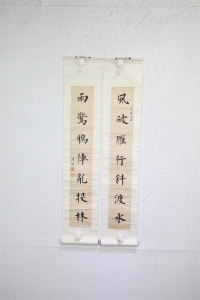 風破雁行斜渡水
雨驚鴉陣亂投林